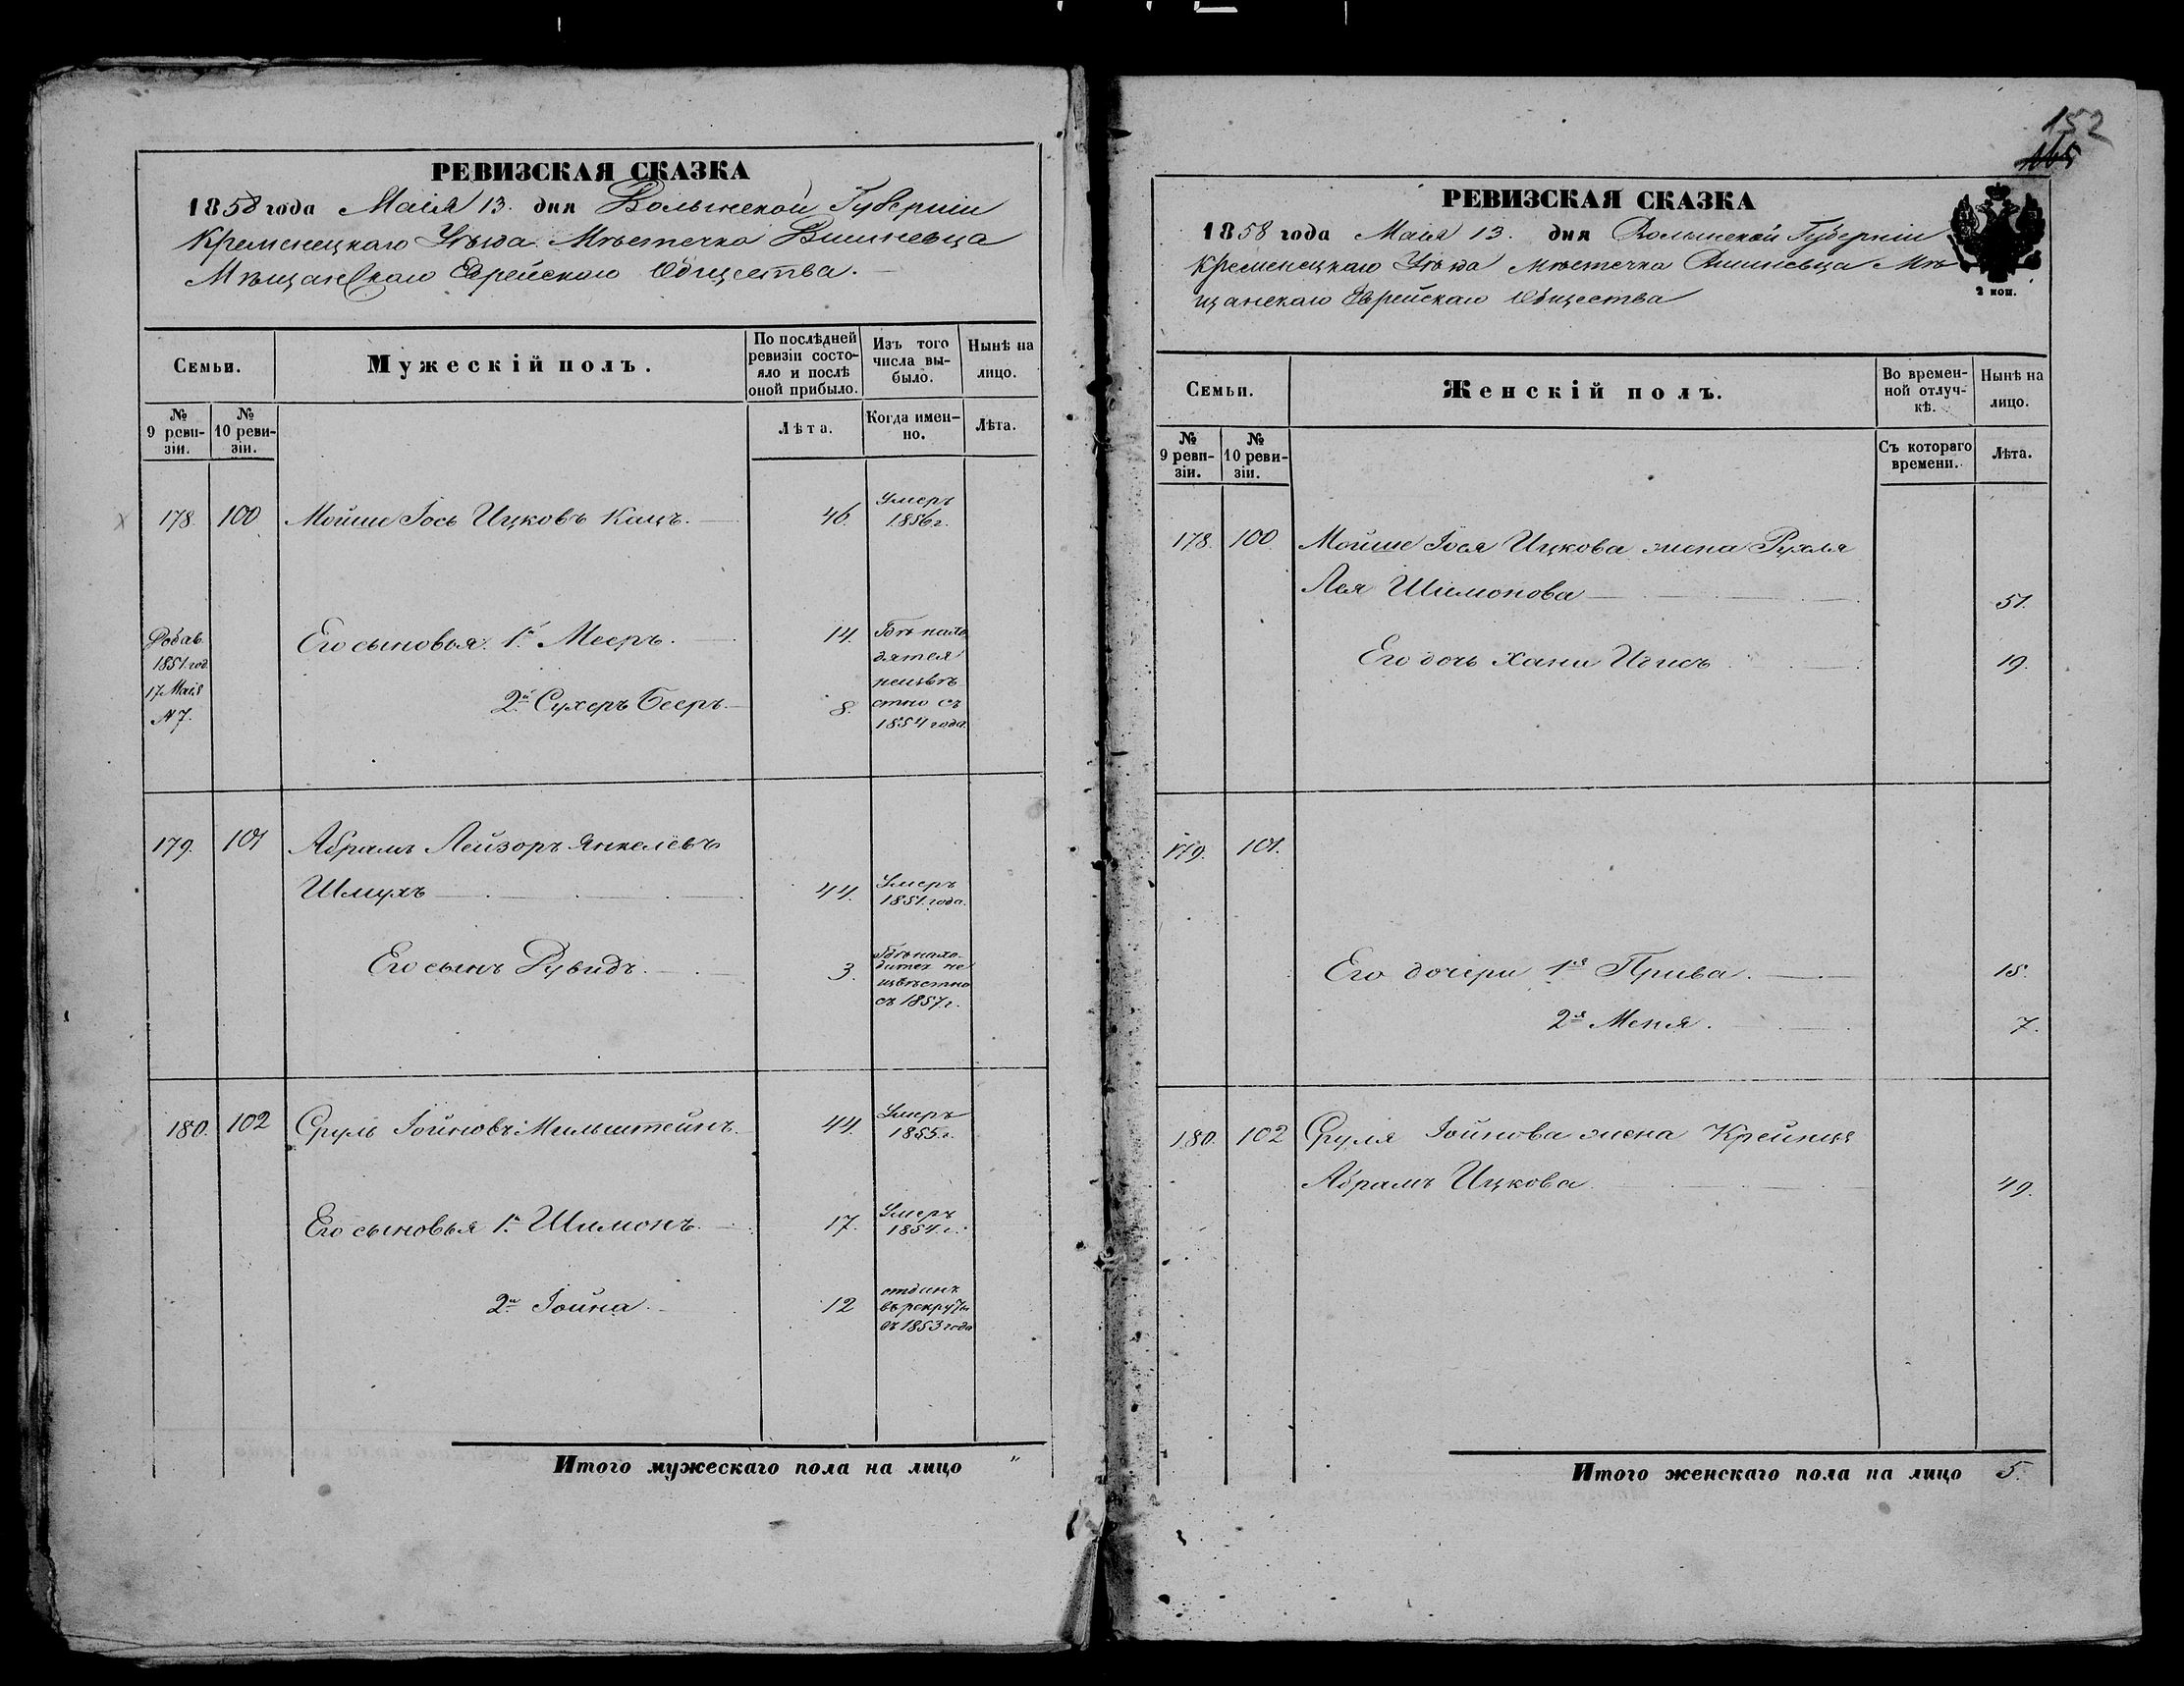 РЕВИЗСКАЯ СКАЗКА
1858 года Маія 13. дня Волынской Губерніи
Кременецкаго Уѣзда Мѣстечка Вишневца
Мѣщанскаго Еврейскаго Общества.
Семьи.
Мужескій полъ.
По послѣдней
ревизіи состо-
яло и послѣ
оной прибыло.
Изъ того
числа вы-
было.
Нынѣ на
лицо.
№
9 реви-
зіи.
№
10 реви-
зіи.
Лѣта.
Когда имен-
но.
Лѣта.
178. 100 Мойше Іось Ицковъ Кацъ. 46. Умеръ
1856 г.
Добав.
1851 год.
17 Маія
№ 7.
Его сыновья: 1й Мееръ. 14.
2й Сухеръ Бееръ. 8.
Гдѣ нахо
дятся
неизвѣ
стно съ
1854 года
179. 101 Абрамъ Лейзоръ Янкелевъ
Шмухъ 44. Умеръ
1851 года.
Его сынъ Рувидъ. 3.
Гдѣ нахо-
дится не
извѣстно
съ 1857 г.
180. 102 Сруль Іойновъ Мильштейнъ. 44. Умеръ
1855 г.
Его сыновья 1й Шимонъ. 17. Умеръ
1854 г.
2й Іойна. 12
отданъ
въ рекруты
въ 1853 года
Итого мужескаго пола на лицо "
152
РЕВИЗСКАЯ СКАЗКА
1858 года Маія 13. дня Волынской Губерніи
Кременецкаго Уѣзда Мѣстечка Вишневца Мѣ
щанскаго Еврейскаго Общества
2 коп.
Семьи.
Женскій полъ.
Во времен-
ной отлуч-
кѣ.
Нынѣ на
лицо.
№
9 реви-
зіи.
№
10 реви-
зіи.
Съ котораго
времени.
Лѣта.
178. 100. Мойше Іося Ицкова жена Рухля
Лея Шимонова 51.
Его дочь Хани Идись 19.
179. 101.
Его дочери 1я Прива. 15.
2я Меня. 7.
180. 102 Сруля Іойнова жена Крейнця
Абрамъ Ицкова 49.
Итого женскаго пола на лицо 5.